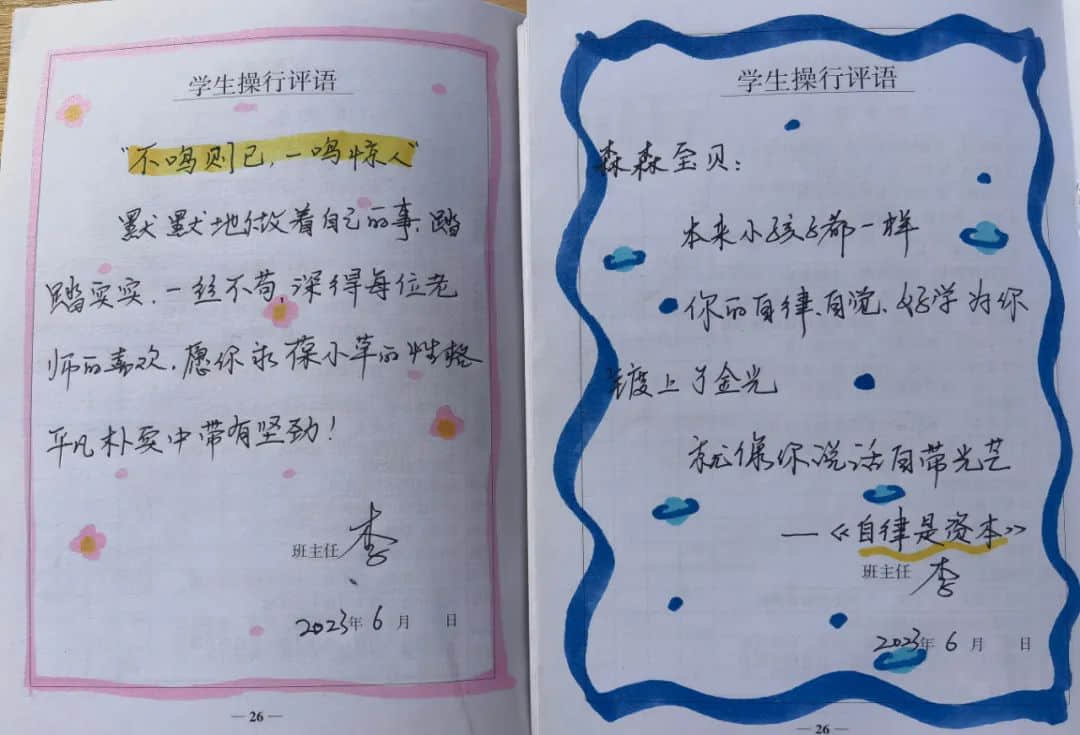 学生操行评语
"不鸣则已,一鸣惊人"
默默地做着自己的事,踏
踏实实,一丝不苟,深得每位老
师的喜欢,愿你永葆小草的性格
平凡朴实中带有坚劲!
班主任 李
2023年 6 月 日
— 26 —
学生操行评语
森森宝贝:
本来小孩子都一样
你的自律、自觉、好学为你
镀上了金光
就像你说话自带光芒
—《自律是资本》
班主任 李
2023年 6 月 日
— 26 —